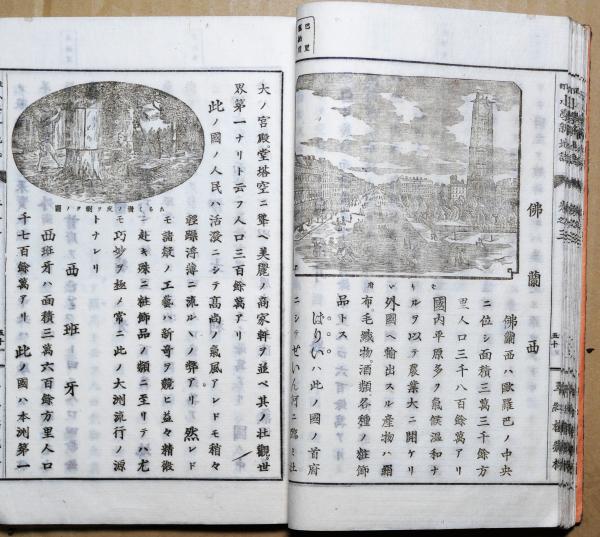 佛蘭西
佛蘭西ハ歐羅巴ノ中央
ニ位シ面積三萬三千餘方
里人口三千八百餘萬アリ
國内平原多ク氣候温和ナ
ルヲ以テ農業大ニ開ケリ
外國ヘ輸出スル産物ハ絹
布毛織物酒類各種ノ粧飾
品トス
はりいハ此ノ國ノ首府
ニシテせいん河ニ臨ミ壮
大ノ宮殿堂塔空ニ聳ヘ美麗ノ商家軒ヲ並ベ其ノ壮觀世
界第一ナリト云フ人口三百餘萬アリ
此ノ國ノ人民ハ活溌ニシテ高尚ノ氣風アレドモ稍々
輕躁浮薄ニ流ルヽノ弊アリ然レド
モ諸般ノ工藝ハ新奇ヲ競ヒ益々精微
ニ赴キ殊ニ粧飾品ノ類ニ至リテハ尤
モ巧妙ヲ極メ常ニ此ノ大洲流行ノ源
トナレリ
西班牙
西班牙ハ面積三萬六百餘方里人口
千七百餘萬アリ此ノ國ハ本洲第一
五十